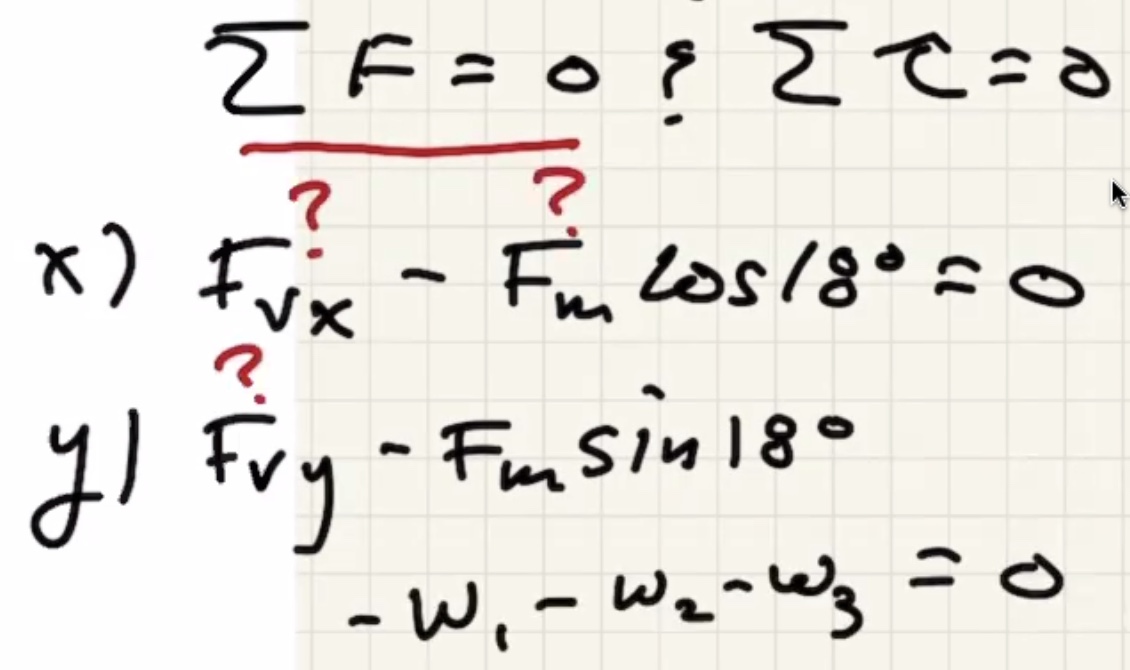 ∑ F = 0 ; ∑ τ = 0
? ?
x) Fvx - Fm cos 18° = 0
?
y) Fvy - Fm sin 18°
- w1 - w2 - w3 = 0